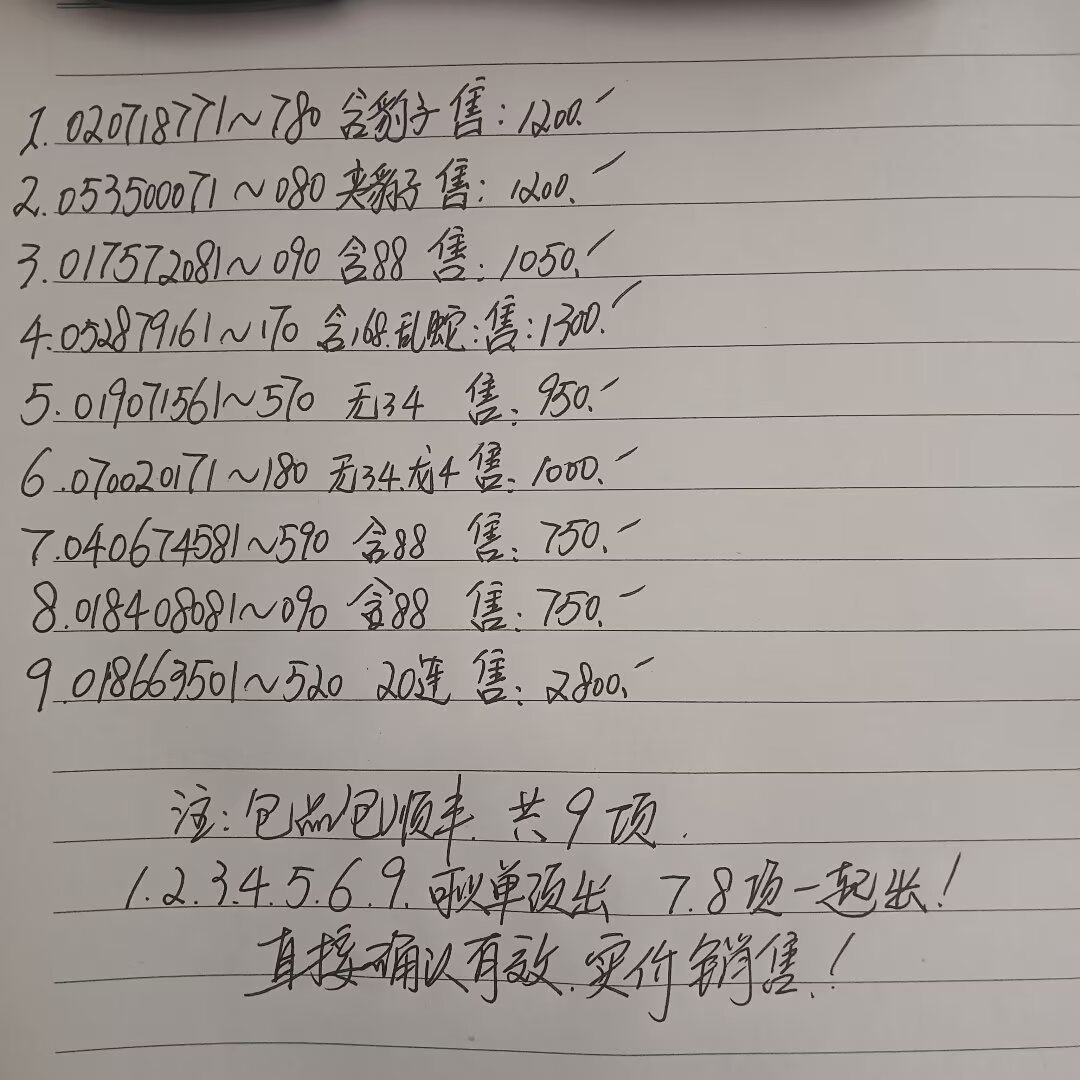 1.020718771~780 含豹子 售:1200.-
2.053500071~080 夹豹子 售:1200.-
3.017572081~090 含88 售:1050.-
4.052879161~170 含168.乱蛇:售:1300.-
5.019071561~570 无34 售:950.-
6.070020171~180 无34.尤4售:1000.-
7.040674581~590 含88 售:750.-
8.018408081~090 含88 售:750.-
9.018663501~520 20连 售:2800.-
注:包品包顺丰.共9项.
1.2.3.4.5.6.9.可以单项出 7.8项一起出!
直接确认有效.实价销售.!